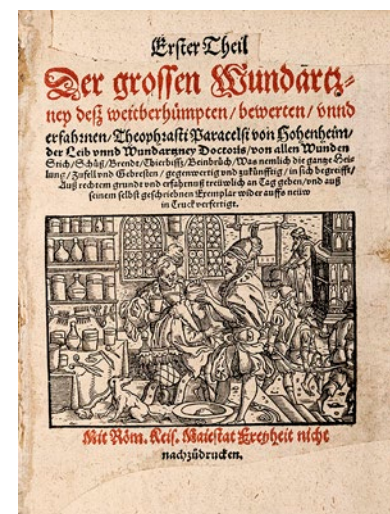 Erster Theil
Der grossen Wundartz⸗
ney deß weitberhümpten/ bewerten/ vnnd
erfahrnen/ Theophrasti Paracelsi von Hohenheim/
der Leib vnnd Wundartzney Doctoris/ von allen Wunden
Stich/ Schüß/ Brendt/ Thierbiss/ Beinbrüch/ Was nemlich die gantze Hei⸗
lung/ Zufell vnd Gebresten/ gegenwertig vnd zukünfftig/ in sich begreifft/
Auß rechtem grundt vnd erfahrnuß treüwlich an Tag geben/ vnd auß
seinem selbst geschriebnen Exemplar wider auffs neüw
in Truck verfertigt.
Mit Röm. Keis. Maiestat Freyheit nicht
nachzüdrucken.